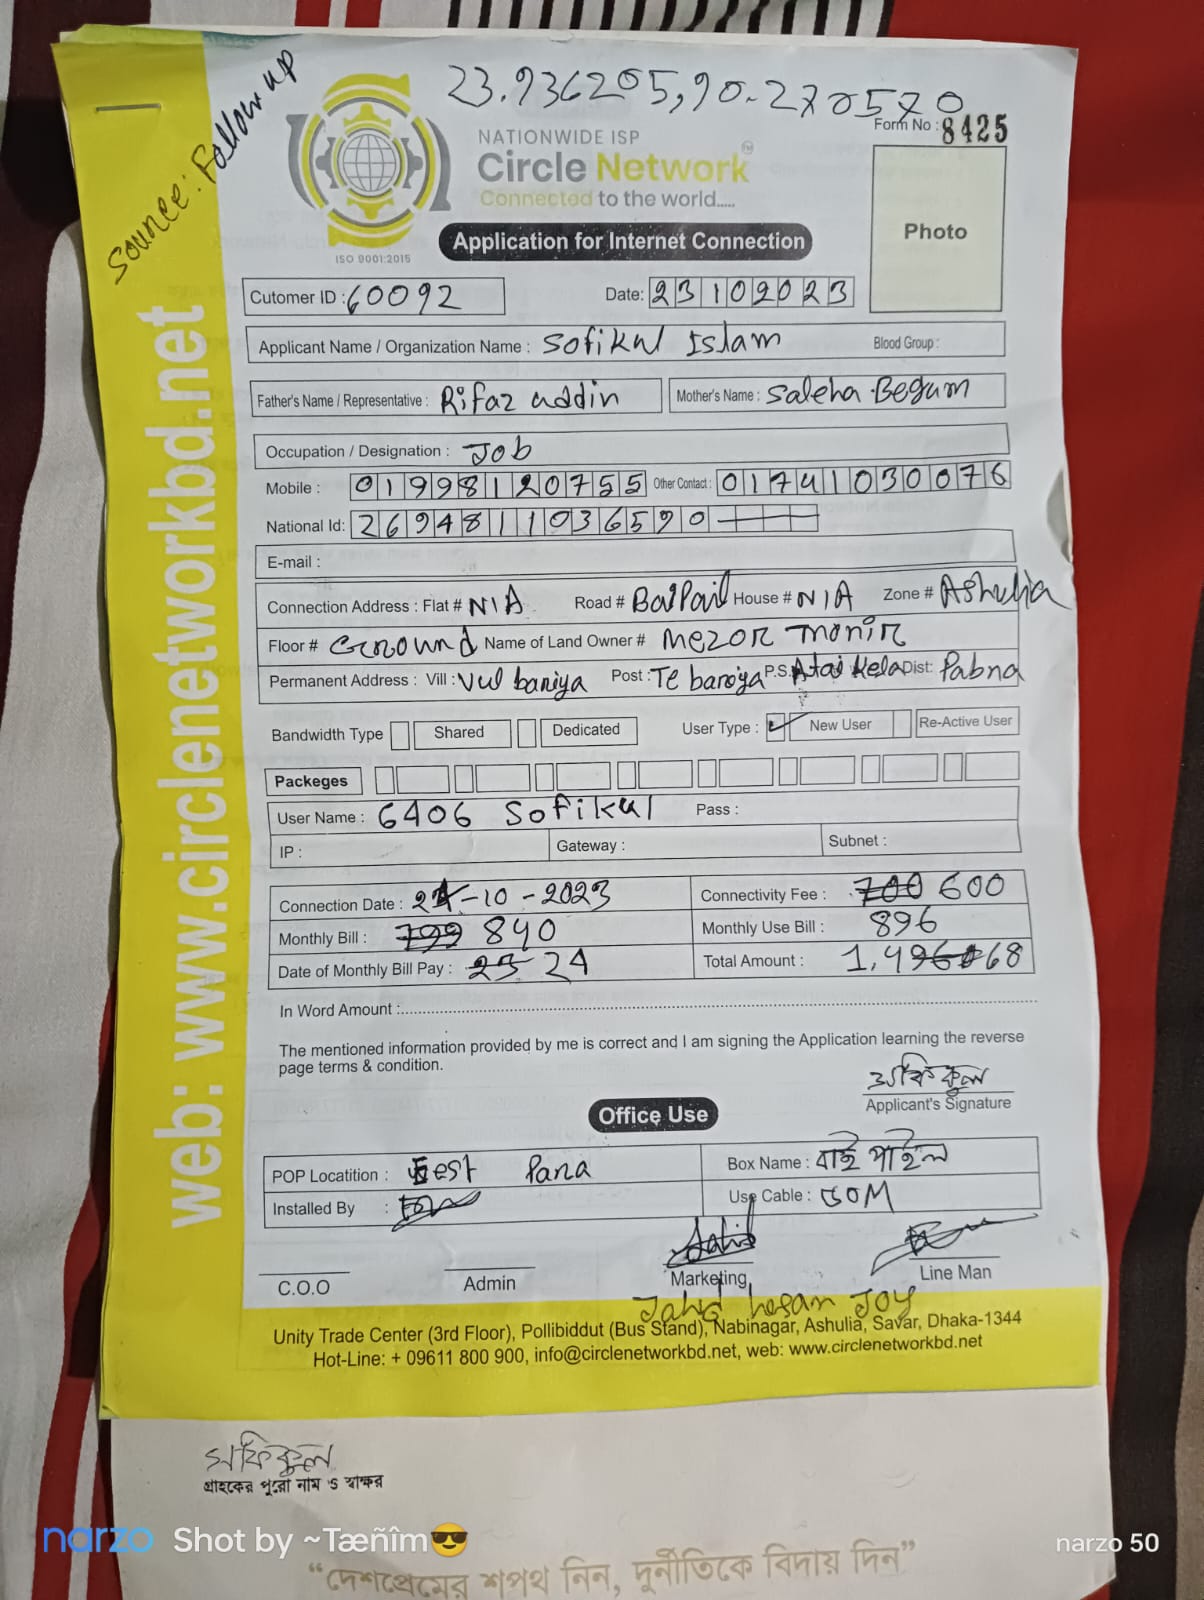 Source: Follow up
23.936205,90.270570
Form No : 8425
NATIONWIDE ISP
Circle Network
Connected to the world.....
ISO 9001:2015
Application for Internet Connection
Photo
Cutomer ID : 60092
Date: 23102023
Applicant Name / Organization Name : Sofikul Islam Blood Group :
Father's Name / Representative : Rifaz uddin Mother's Name : Saleha Begum
Occupation / Designation : Job
Mobile : 01998120755 Other Contact : 01741030076
National Id: 2694811036590
E-mail :
Connection Address : Flat # N/A Road # Baipail House # N/A Zone # Ashulia
Floor # Ground Name of Land Owner # Mezor Monir
Permanent Address : Vill : Vul baniya Post : Te baroiya P.S. Atai kela Dist: Pabna
Bandwidth Type Shared Dedicated User Type : ✓ New User Re-Active User
Packeges
User Name : 6406 Sofikul Pass :
IP : Gateway : Subnet :
Connection Date : 24-10-2023 Connectivity Fee : 700 600
Monthly Bill : 799 840 Monthly Use Bill : 896
Date of Monthly Bill Pay : 23 24 Total Amount : 1,496 68
In Word Amount :
The mentioned information provided by me is correct and I am signing the Application learning the reverse
page terms & condition.
সফিকুল
Applicant's Signature
Office Use
POP Locatition : East Para Box Name : বাই পাইল
Installed By : Use Cable : 50M
C.O.O Admin Marketing Line Man
Jahid hasan Joy
Unity Trade Center (3rd Floor), Pollibiddut (Bus Stand), Nabinagar, Ashulia, Savar, Dhaka-1344
Hot-Line: + 09611 800 900, info@circlenetworkbd.net, web: www.circlenetworkbd.net
web: www.circlenetworkbd.net
সফিকুল
গ্রাহকের পুরো নাম ও স্বাক্ষর
narzo Shot by ~Tæñîm😎 narzo 50
“দেশপ্রেমের শপথ নিন, দুর্নীতিকে বিদায় দিন”